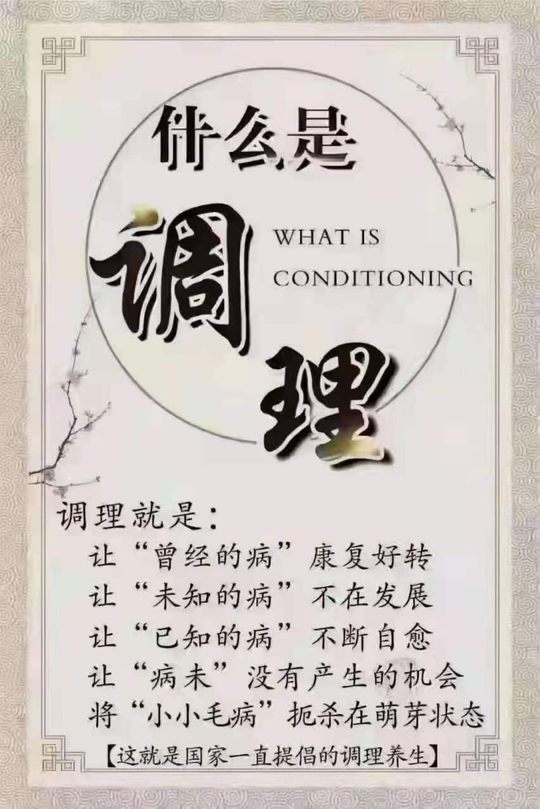 什么是
调
WHAT IS
CONDITIONING
理
调理就是：
让“曾经的病”康复好转
让“未知的病”不在发展
让“已知的病”不断自愈
让“病未”没有产生的机会
将“小小毛病”扼杀在萌芽状态
【这就是国家一直提倡的调理养生】